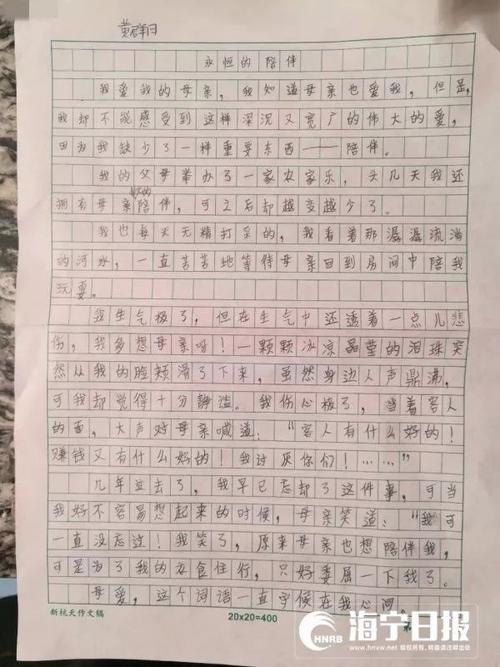 黄翔
永恒的陪伴
我爱我的母亲，我知道母亲也爱我，但是，
我却不能感受到这种深沉又宽广的伟大的爱，
因为我缺少了一种重要东西——陪伴。
我的父母举办了一家农家乐，头几天我还
拥有母亲的陪伴，可之后却越变越少了。
我也每天无精打采的，我看着那潺潺流淌
的河水，一直苦苦地等待母亲回到房间中陪我
玩耍。
我生气极了，但在生气中还透着一点儿悲
伤，我多想母亲呀！一颗颗冰凉晶莹的泪珠突
然从我的脸颊滑了下来，虽然身边人声鼎沸，
可我却觉得十分静谧。我伤心极了，当着客人
的面，大声对母亲喊道：“客人有什么好的！
赚钱又有什么好的！我讨厌你们！……”
几年过去了，我早已忘却了这件事，可当
我好不容易想起来的时候，母亲笑道：“我可
一直没忘过！我笑了，原来母亲也想陪伴我，
可是为了我的衣食住行，只好委屈一下我了。
母爱，这个词语一直守候在我心间。
新杭天作文稿
20×20=400
HNRB
海宁日报